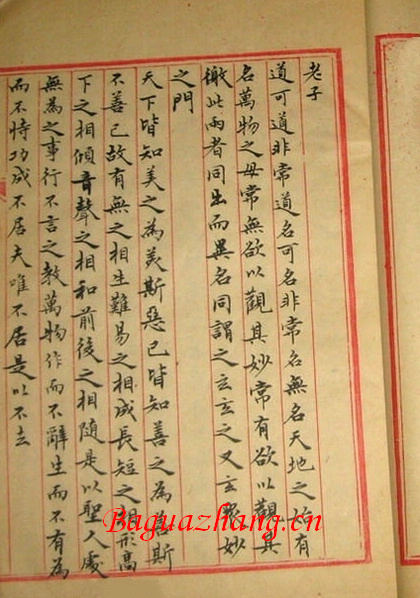 老子
道可道非常道名可名非常名無名天地之始有
名萬物之母常無欲以觀其妙常有欲以觀其
徼此兩者同出而異名同謂之玄玄之又玄眾妙
之門
天下皆知美之為美斯惡已皆知善之為善斯
不善已故有無之相生難易之相成長短之相形高
下之相傾音聲之相和前後之相隨是以聖人處
無為之事行不言之教萬物作而不辭生而不有為
而不恃功成不居夫唯不居是以不去
Baguazhang.cn